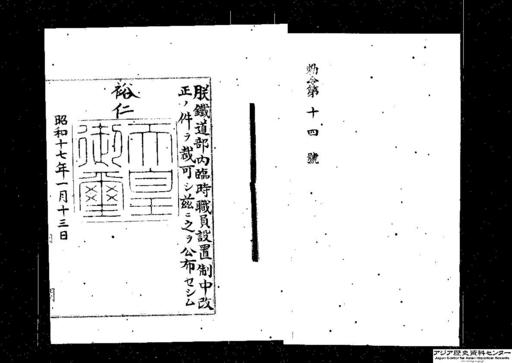 勅令第十四號
朕鐵道部內臨時職員設置制中改
正ノ件ヲ裁可シ茲ニ之ヲ公布セシム
裕仁
天皇
御璽
昭和十七年一月十三日
アジア歴史資料センター
Japan Center for Asian Historical Records